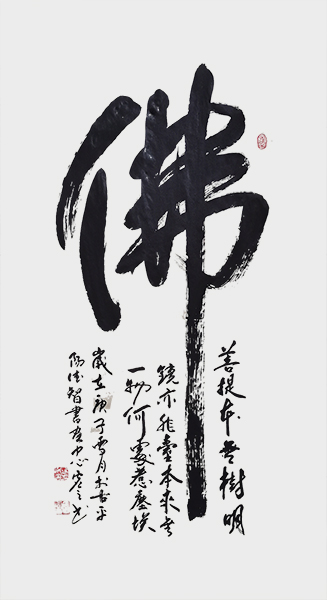 佛
菩提本无樹明
鏡亦非臺本來無
一物何處惹塵埃
歲在庚子雪月於古平
陽德智書於中心堂